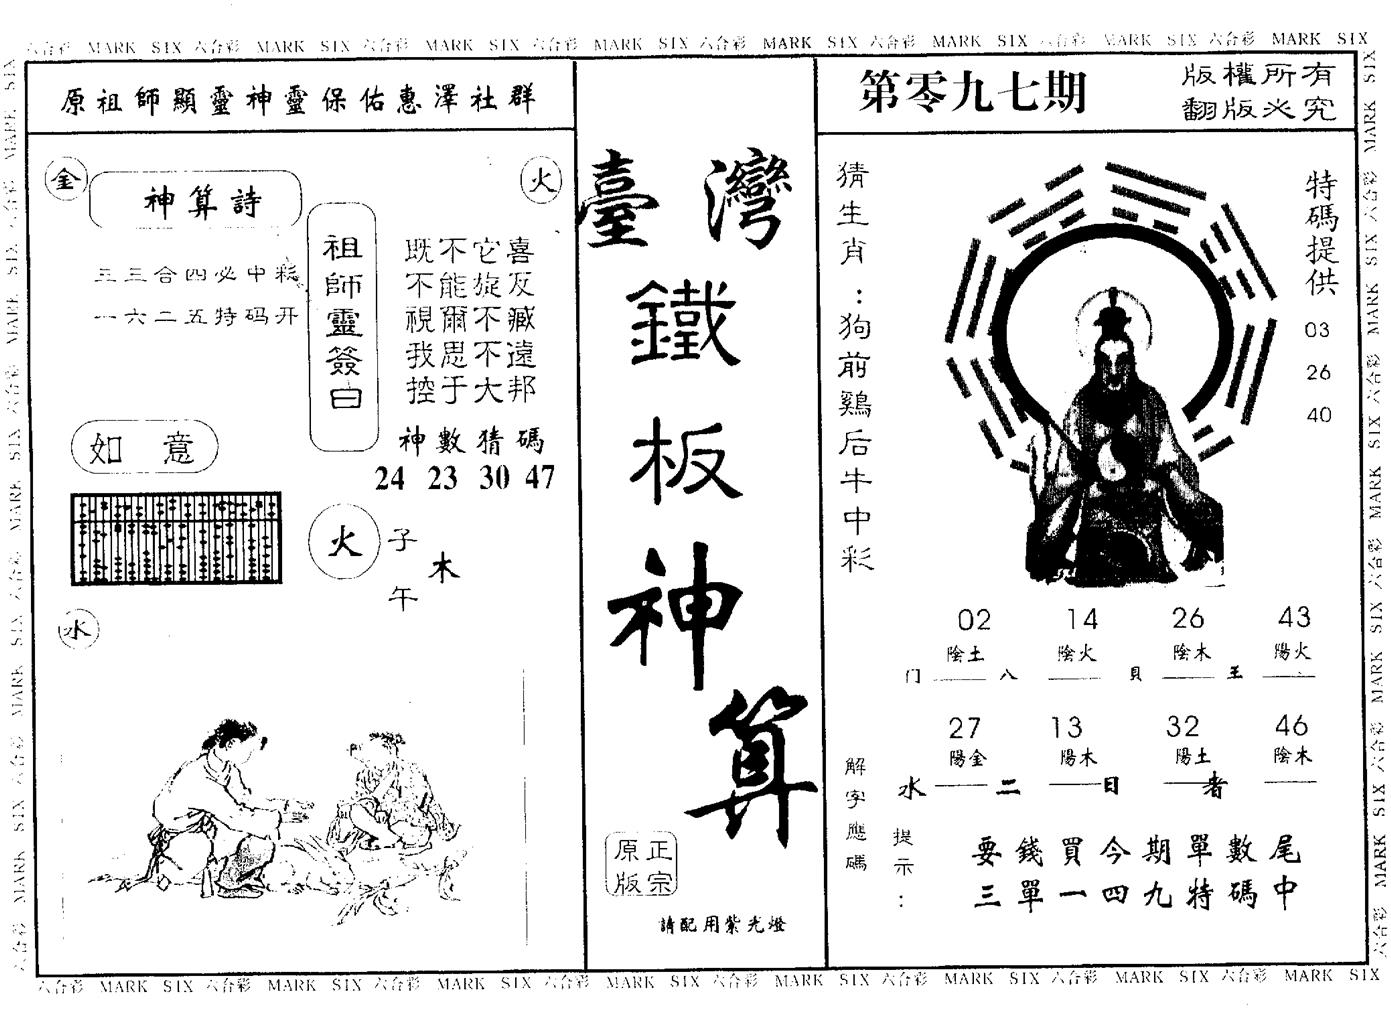 六合彩 MARK SIX 六合彩 MARK SIX 六合彩 MARK SIX 六合彩 MARK SIX 六合彩 MARK SIX 六合彩 MARK SIX 六合彩 MARK SIX 六合彩 MARK SIX
原祖師顯靈神靈保佑惠澤社群
金
火
神算詩
三三合四必中彩
一六二五特码开
祖師靈簽曰
既不它喜
不能旋反
視爾不臧
我思不遠
控于大邦
神數猜碼
24 23 30 47
如意
火
子
午
木
水
臺灣
鐵
板
神
算
原正
版宗
請配用紫光燈
第零九七期
版權所有
翻版必究
猜生肖：狗前鷄后牛中彩
特碼提供
03
26
40
02 14 26 43
陰土 陰火 陰木 陽火
门 八 貝 王
27 13 32 46
陽金 陽木 陽土 陰木
水 二 日 者
解字應碼
提示：
要錢買今期單數尾
三單一四九特碼中
六合彩 MARK SIX 六合彩 MARK SIX 六合彩 MARK SIX 六合彩 MARK SIX 六合彩 MARK SIX 六合彩 MARK SIX 六合彩 MARK SIX 六合彩 MARK SIX